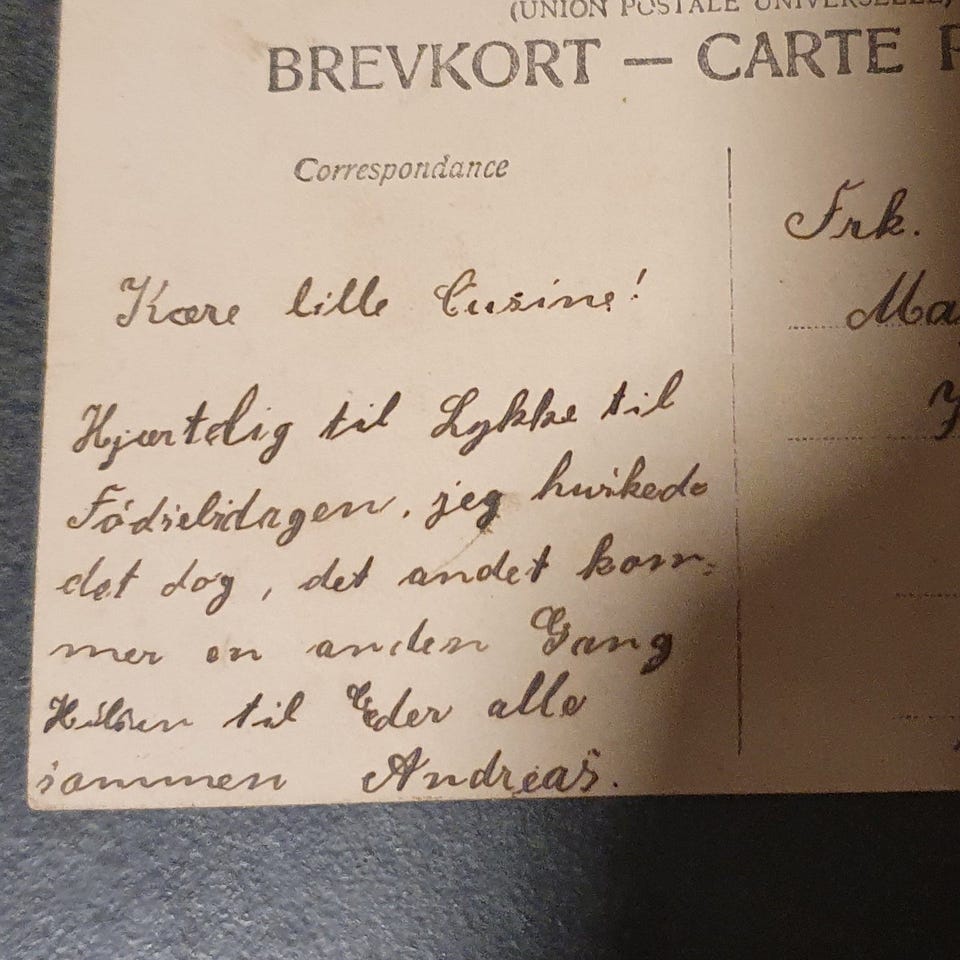 (UNION POSTALE UNIVERSELLE)
BREVKORT — CARTE
Correspondance
Frk.
Kære lille Cusine!
Hjærtelig til Lykke til
Fødselsdagen, jeg huskede
det dog, det andet kom-
mer en anden Gang
Hilsen til Eder alle
sammen Andreas.